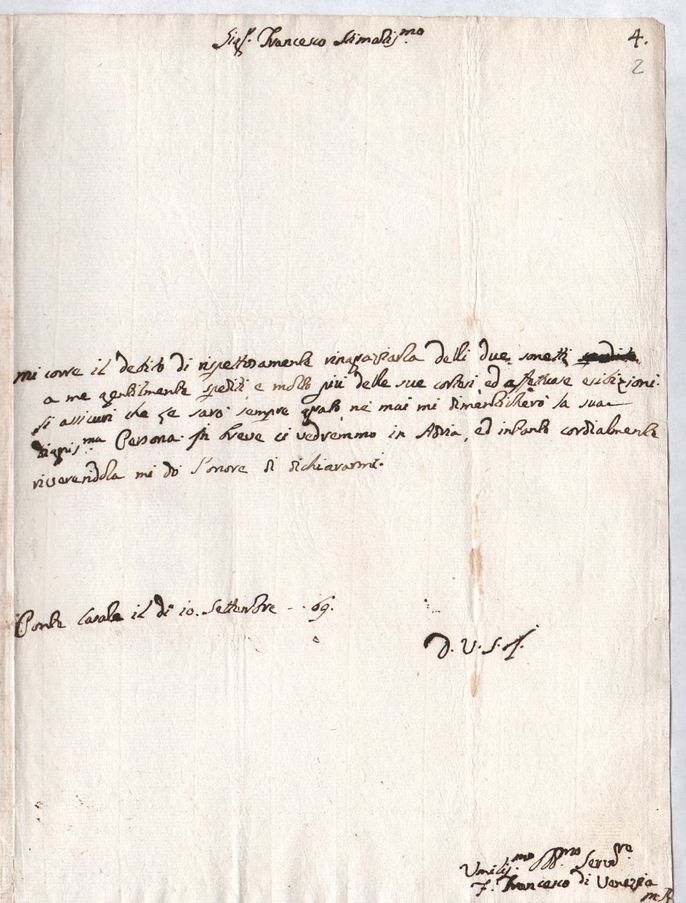 Sig.r Francesco Stimatis.mo
4.
2
Mi corre il debito di rispettosamente ringraziarla delli due sonetti
a me gentilmente spediti, e molto più delle sue cortesi, ed affettuose esibizioni.
Si assicuri che Le sarò sempre grato, nè mai mi dimenticherò la sua
Dignis.ma Persona. In breve ci vedremmo in Adria, ed intanto cordialmente
riverendola mi do l'onore di dichiararmi.
Ponte Casale il dì 10. Settembre .. 69.
D. V. S.
Umilis.mo Obb.mo Servid.re
F. Francesco di Venezia